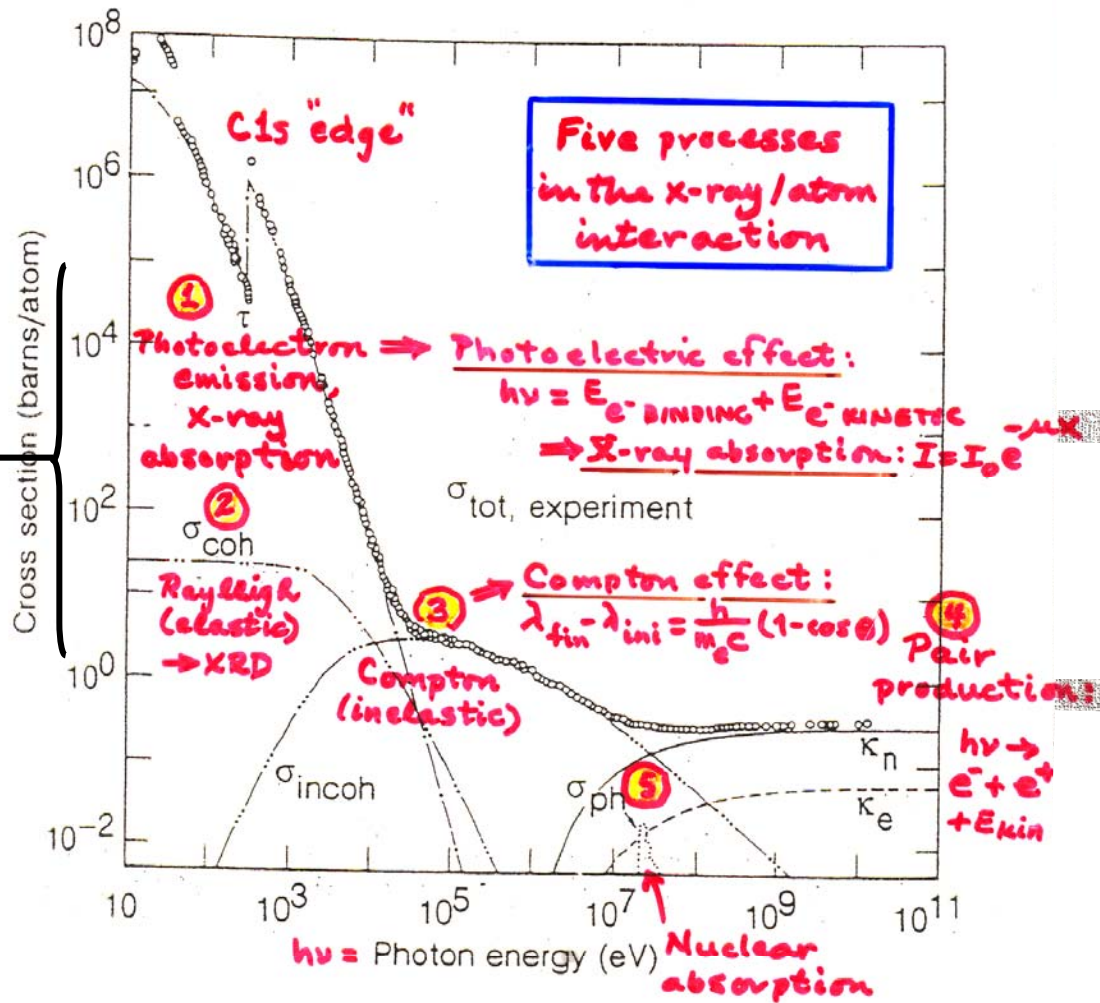 10^8
10^6
10^4
10^2
10^0
10^-2
Cross section (barns/atom)
C1s "edge"
Five processes
in the x-ray/atom
interaction
τ
1
Photoelectron
emission,
x-ray
absorption
⇒ Photoelectric effect:
hν = E e- BINDING + E e- KINETIC
⇒ X-ray absorption: I = I₀e^-μx
σtot, experiment
2
σcoh
Rayleigh
(elastic)
→ XRD
3
⇒ Compton effect:
λfin - λini = h/mₑc (1-cosθ)
Compton
(inelastic)
4
Pair
production:
hν →
e- + e+
+ Ekin
σincoh
σph
5
κn
κe
10 10^3 10^5 10^7 10^9 10^11
hν = Photon energy (eV)
Nuclear
absorption